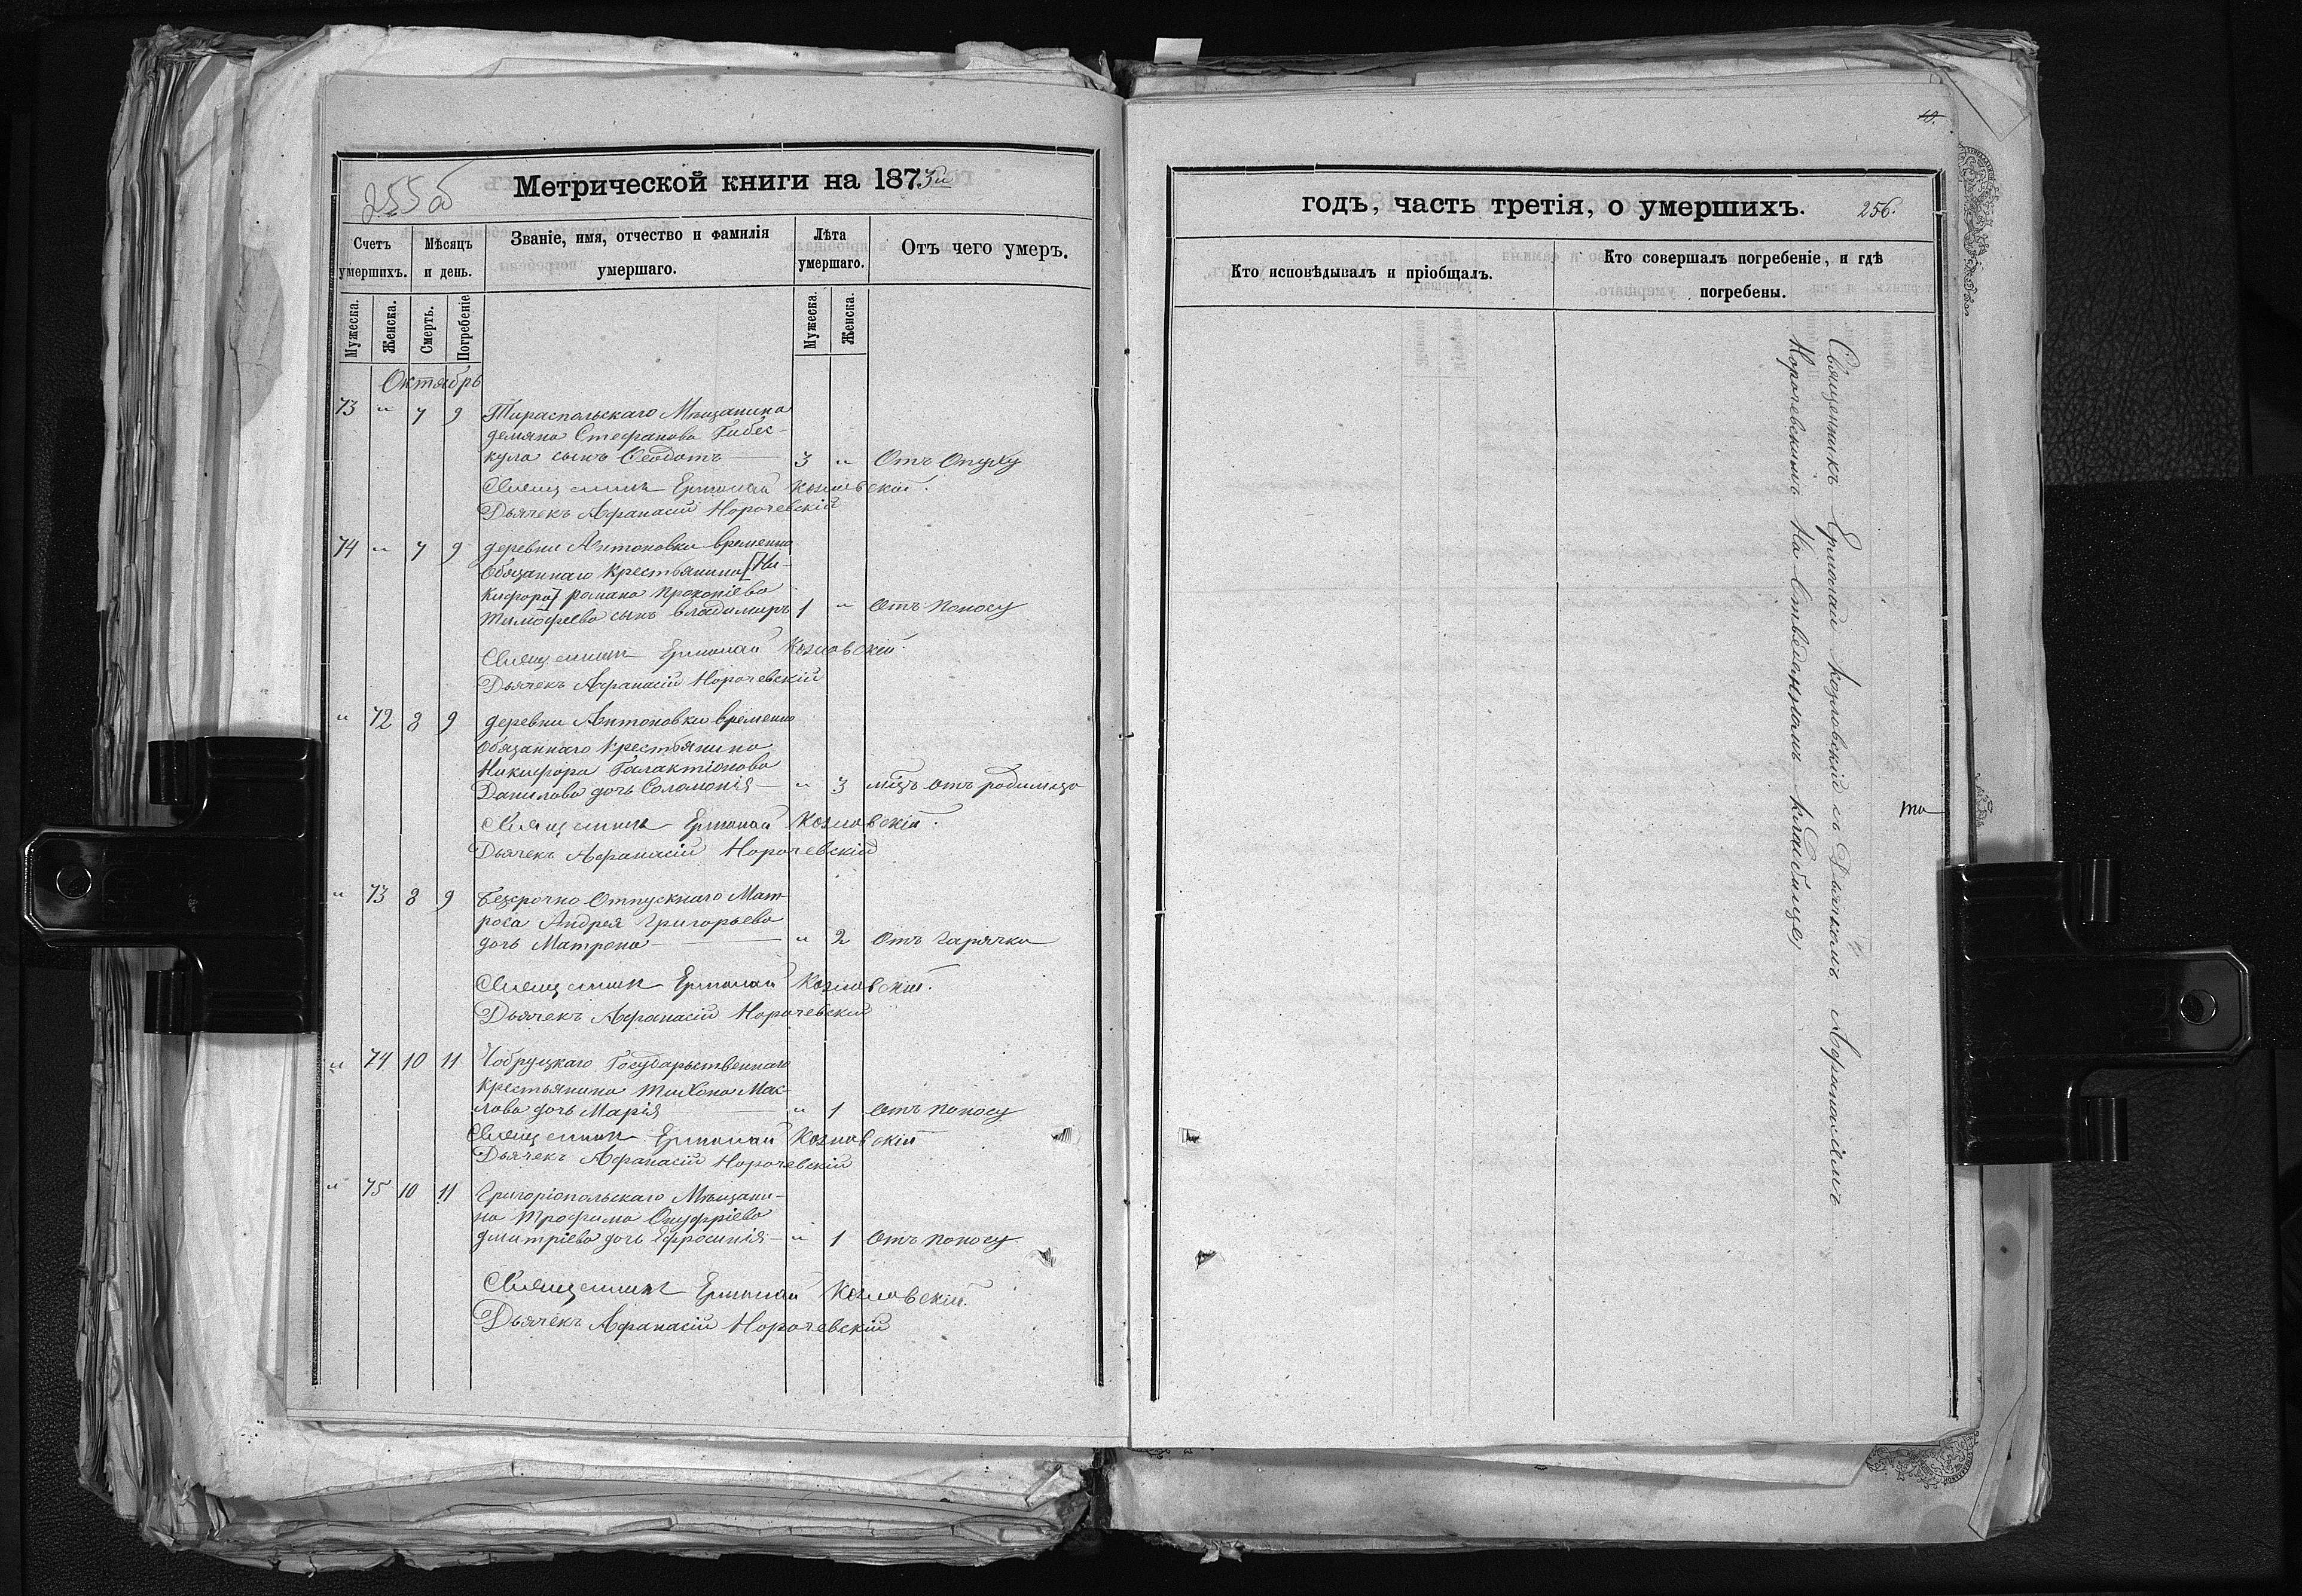 255 об
Метрической книги на 1873й
Счетъ умершихъ.
Мѣсяцъ и день.
Званіе, имя, отчество и фамилія умершаго.
Лѣта умершаго.
Отъ чего умеръ.
Мужеска.
Женска.
Смерть.
Погребеніе
Мужеска.
Женска.
Октябрь
73 " 7 9 Тираспольскаго Мѣщанина
демяна Стефанова Гибес-
кула сынъ Феодотъ — 3 " Отъ Опуху
Священникъ Ермолай Козловскій.
Дьячекъ Афанасій Норочевскій
74 " 7 9 деревни Антоновки временно
Обязаннаго Крестьянина [Ни-
кифора] романа Прокопіева
Тимофеева сынъ Владимиръ 1 " Отъ поносу
Священникъ Ермолай Козловскій.
Дьячекъ Афанасій Норочевскій
" 72 8 9 деревни Антоновки временно
Обязаннаго Крестьянина
Никифора Галактіонова
Данилова дочь Соломонія — " 3 мѣц отъ родимца
Священникъ Ермолай Козловскій.
Дьячекъ Афанасій Норочевскій
" 73 8 9 Безсрочно Отпускнаго Мат-
роса Андрея Григорьева
дочь Матрона — " 2 Отъ Гарячки
Священникъ Ермолай Козловскій.
Дьячекъ Афанасій Норочевскій
" 74 10 11 Чобруцкаго Государственнаго
Крестьянина Тихона Мас-
лова дочь Марія — " 1 Отъ поносу
Священникъ Ермолай Козловскій
Дьячекъ Афанасій Норочевскій
" 75 10 11 Григоріопольскаго Мѣщани-
на Трофима Онуфріева
дмитріева дочь Ефросинія — " 1 Отъ поносу
Священникъ Ермолай Козловскій.
Дьячекъ Афанасій Норочевскій
годъ, часть третія, о умершихъ.
256.
Кто исповѣдывалъ и пріобщалъ.
Кто совершалъ погребеніе, и гдѣ погребены.
Священникъ Ермолай Козловскій съ Дьячкомъ Афанасіемъ
Норочевскимъ На Отведенномъ кладбищѣ
та